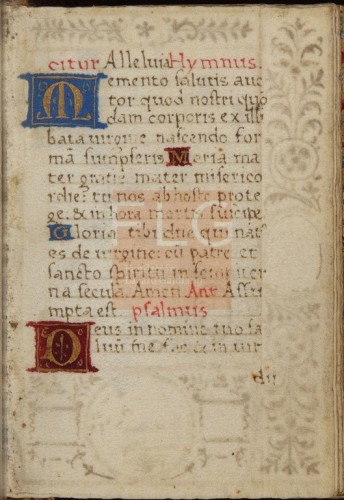 citur Alleluia Hymnus.
Memento salutis auc
tor quod nostri quo
dam corporis ex illi
bata virgine nascendo for
mā sumpseris Maria ma
ter gratie mater misericor
die: tu nos ab hoste prote
ge. & in hora mortis suscipe
Gloria tibi dñe qui nat⁹
es de virgine: cū patre et
sancto spiritu in sempiter
na secula. Amen Anr Assu
mpta est. psalmus
Deus in nomine tuo sa
luū me fac & in vir